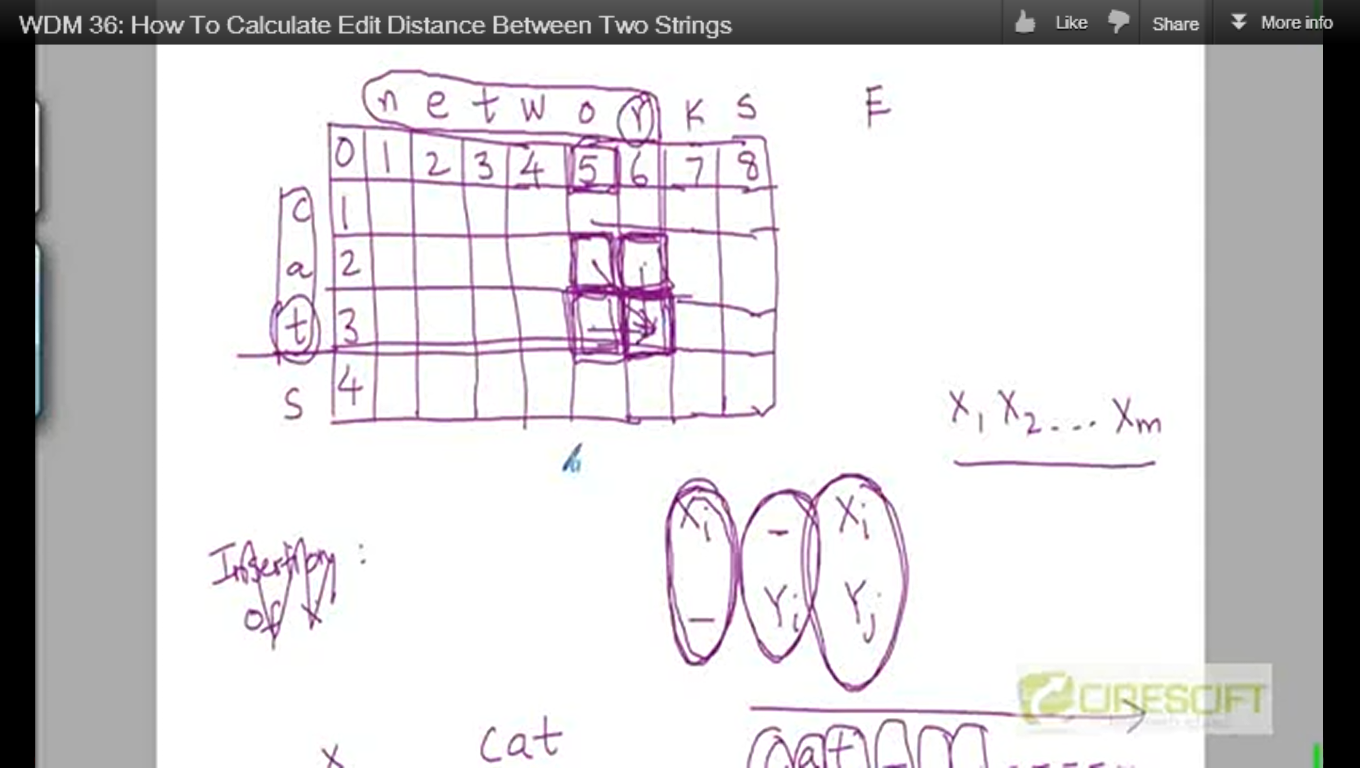 WDM 36: How To Calculate Edit Distance Between Two Strings
Like Share More info
n e t w o r k s E
0 1 2 3 4 5 6 7 8
c 1
a 2
t 3
s 4
X1 X2 ... Xm
Xi - Xi
- Yi Yj
Insertion :
of x
CIRESCIFT
cat
x
cat